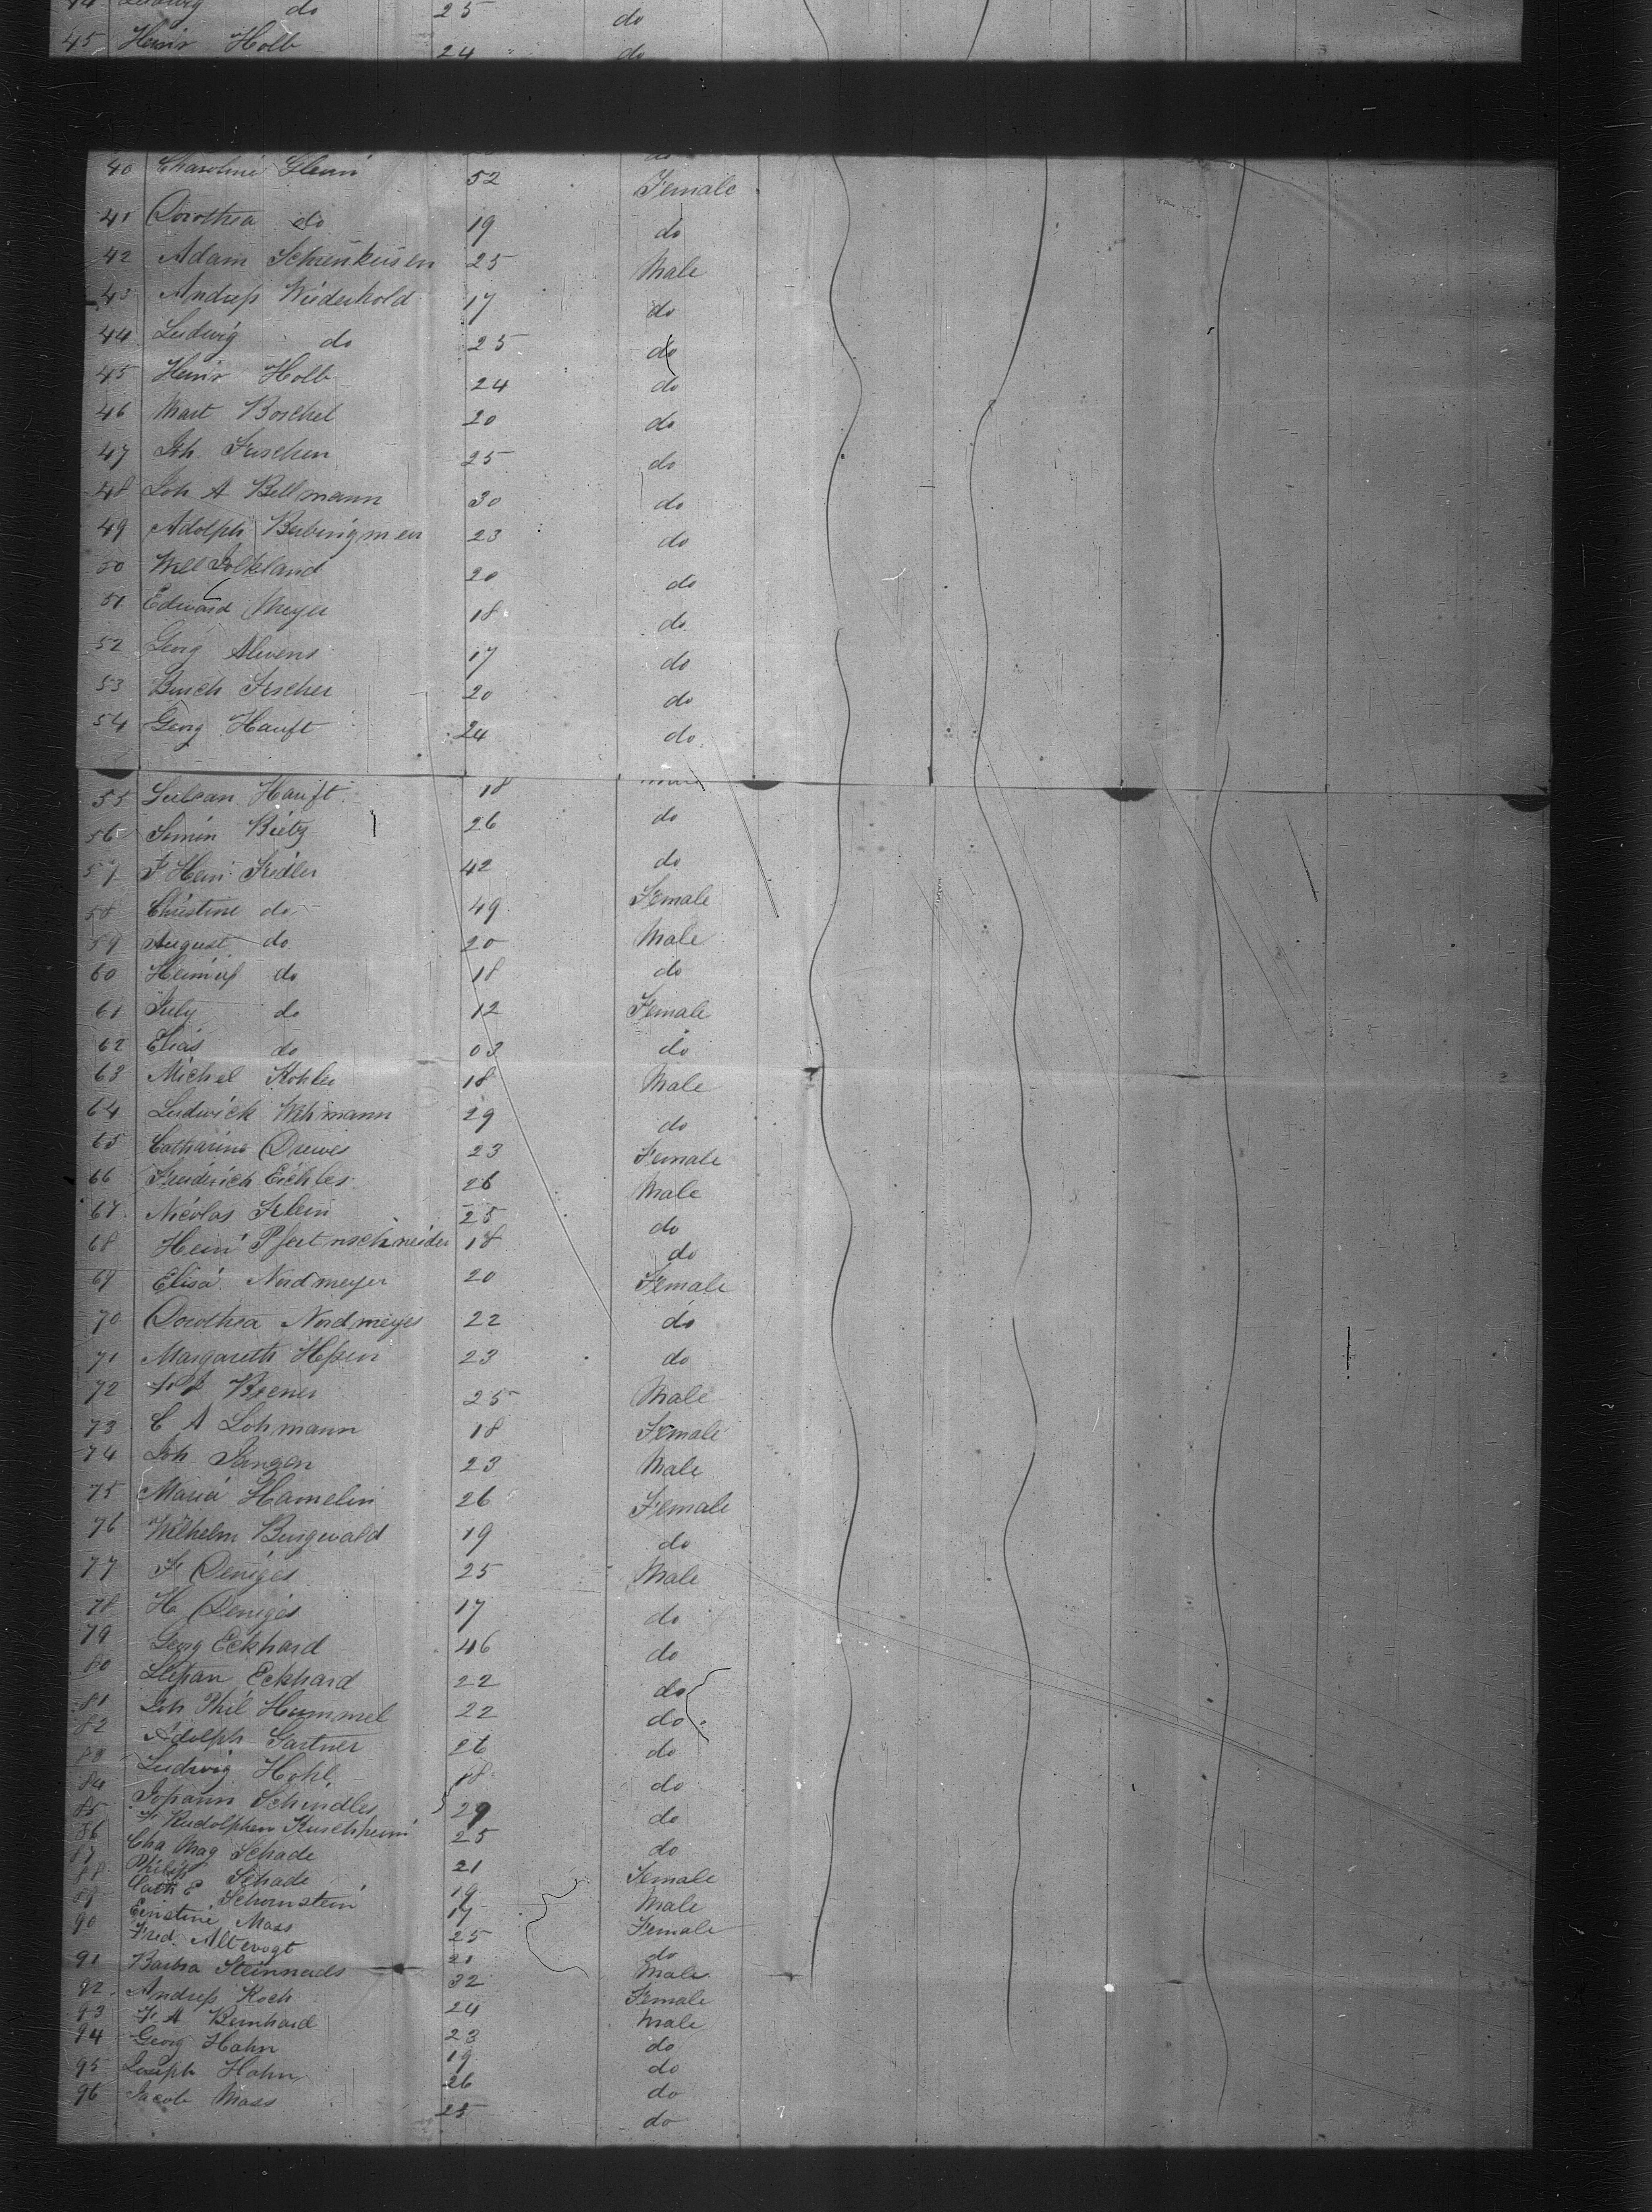 44 Ludwig do 25 do
45 Heinr Holb 24 do
40 Charoline Glenn 52 Female
41 Dorothea do 19 do
42 Adam Schrenkeisen 25 Male
43 Andreß Wiederhold 17 do
44 Ludwig do 25 do
45 Heinr Holb 24 do
46 Mart Boschel 20 do
47 Joh. Frischen 25 do
48 Joh A Bellmann 30 do
49 Adolph 23 do
50 Will 20 do
51 Edward Meyer 18 do
52 Georg Alwens 17 do
53 Fischer 20 do
54 Georg Hauft 24 do
55 Hauft 18
56 Simon Bietz 26 do
57 F Hein Fiedler 42 do
58 Christine do 49 Female
59 August do 20 Male
60 Heinrich do 18 do
61 July do 12 Female
62 Elias do 03 do
63 Michel Kohler 18 Male
64 Ludwick Wihmann 29 do
65 Catharine Drewes 23 Female
66 Friederich Eichler 26 Male
67 Nicolas Klein 25 do
68 Hein Pfertnschneider 18 do
69 Elisa Nordmeyer 20 Female
70 Dorothea Nordmeyer 22 do
71 Margareth Heßen 23 do
72 Brener 25 Male
73 C A Lohmann 18 Female
74 Joh Jangen 23 Male
75 Maria Hamelin 26 Female
76 Wilhelm Burgwald 19 do
77 Fr Deniges 25 Male
78 He Deniges 17 do
79 Georg Eckhard 46 do
80 Stepan Eckhard 22 do
81 Joh Phil Hummel 22 do
82 Adolph Gartner 26 do
83 Ludwig Hohl 18 do
84 Johann Schindler 29 do
85 Fr Rudolphen 25 do
86 Cha Mag Schade 21 Female
87 Philip Schade 19 Male
88 Cath E Schornstein 17 Female
89 Ernstine Mass 25 do
90 Fred. Altevogt 21 Male
91 Barbra 32 Female
92 Andreß Koch 24 Male
93 Fr A Bernhard 23 do
94 Georg Hahn 19 do
95 Joseph Hahn 26 do
96 Jacob Mass 25 do